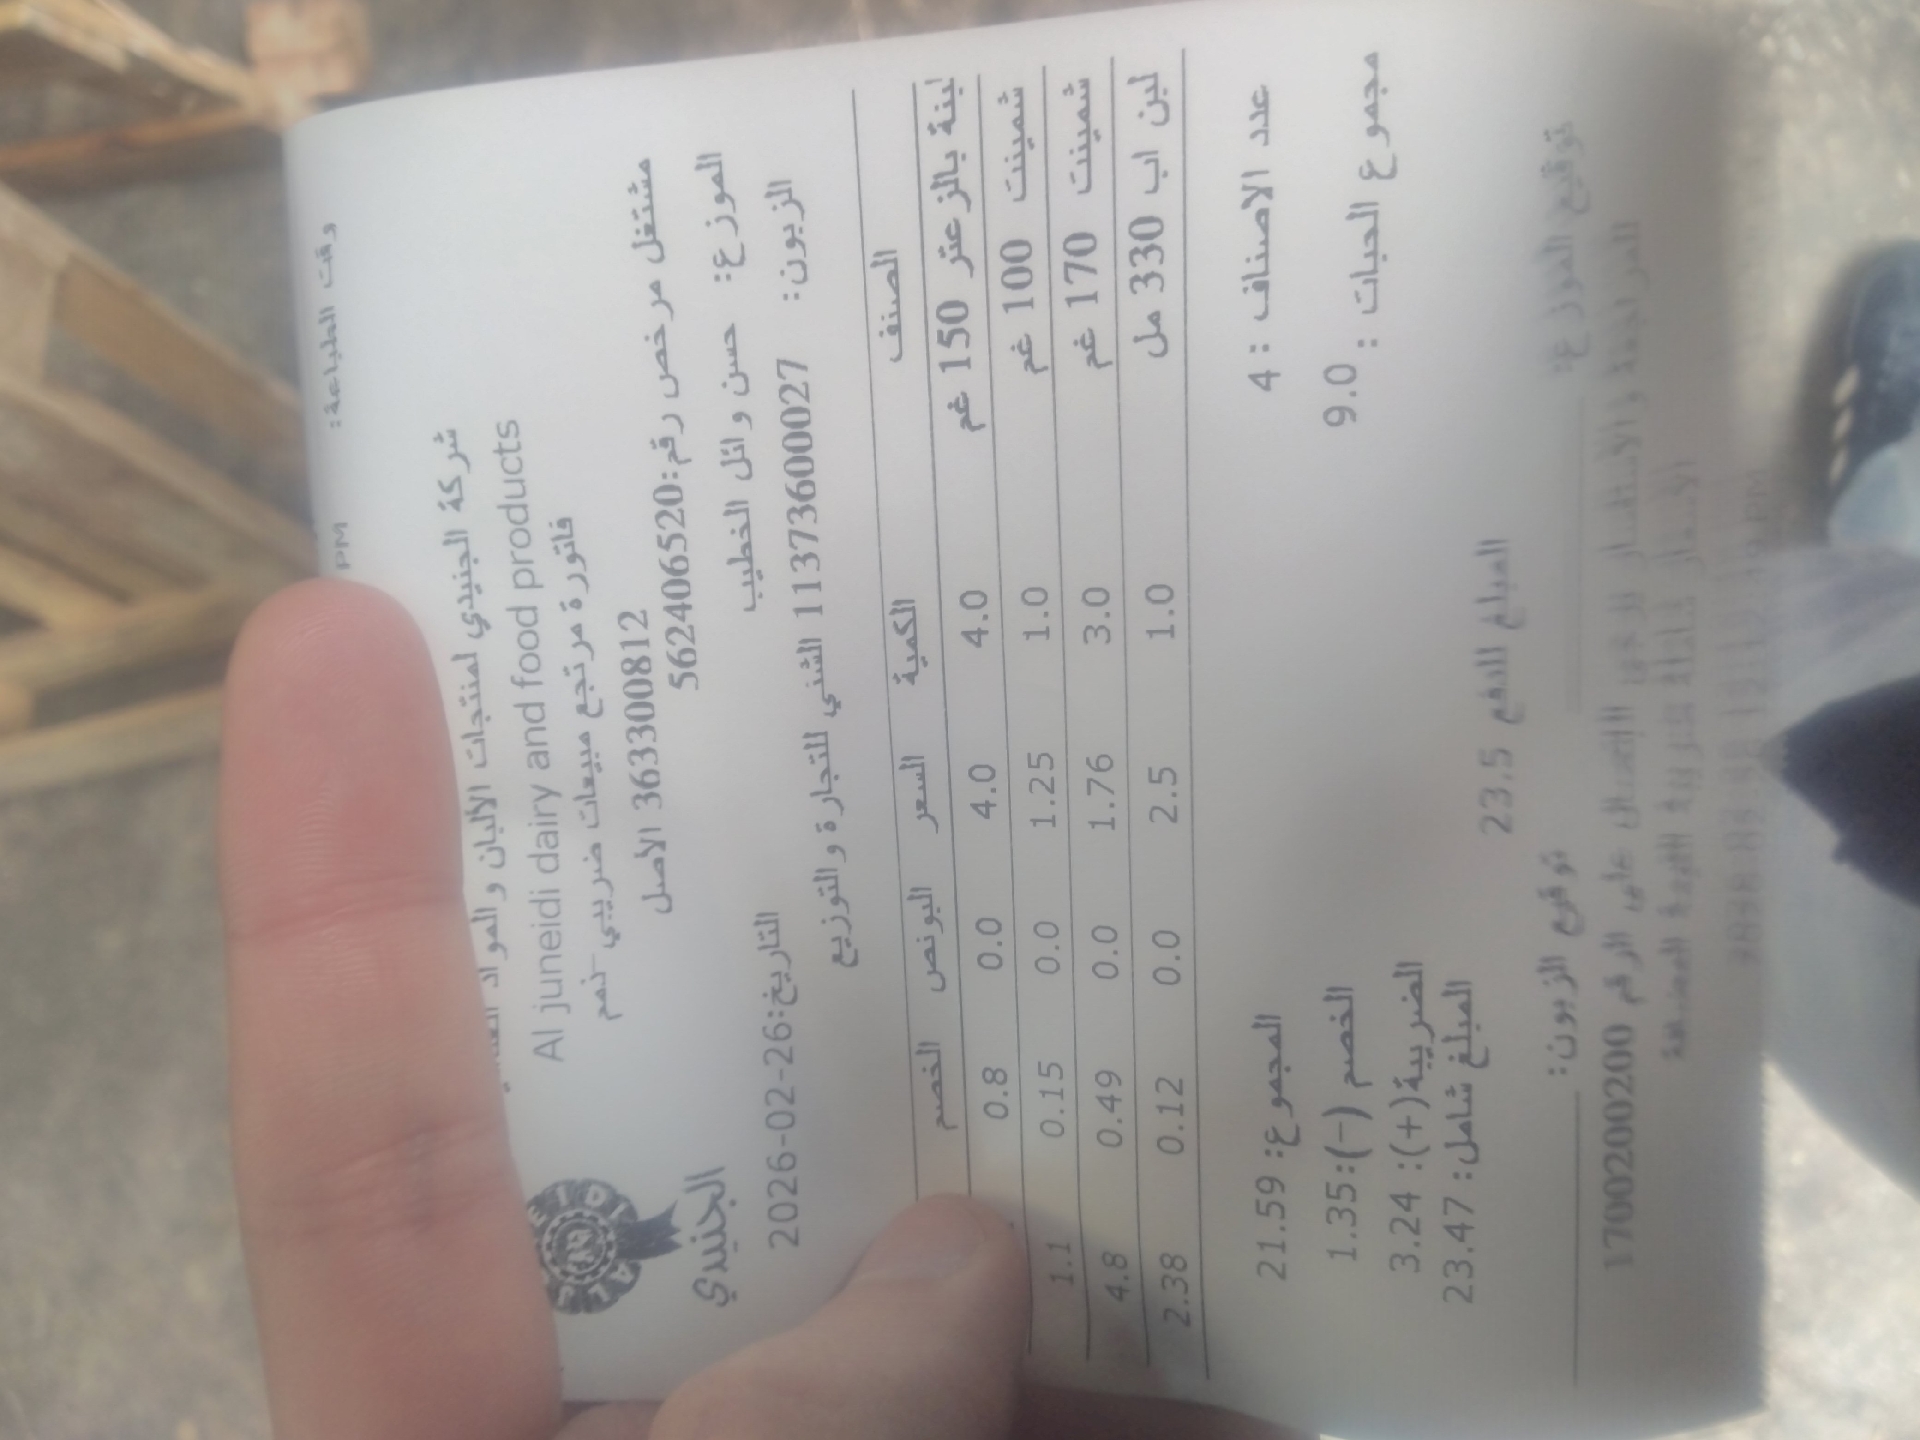 وقت الطباعة: PM
شركة الجنيدي لمنتجات الألبان والمواد
Al juneidi dairy and food products
فاتورة مرتجع مبيعات ضريبي-ذمم
363300812 الاصل
مشتغل مرخص رقم:562406520
الجنيدي
الموزع: حسن وائل الخطيب
التاريخ:2026-02-26
الزبون: 11373600027 الشني للتجارة والتوزيع
الصنف الكمية السعر البونص الخصم
لبنة بالزعتر 150 غم 4.0 4.0 0.0 0.8
شمينت 100 غم 1.0 1.25 0.0 0.15 1.1
شمينت 170 غم 3.0 1.76 0.0 0.49 4.8
لبن اب 330 مل 1.0 2.5 0.0 0.12 2.38
عدد الاصناف : 4 المجموع: 21.59
مجموع الحبات : 9.0 الخصم (-):1.35
الضريبة(+): 3.24
المبلغ شامل: 23.47
المبلغ للدفع 23.5
توقيع الموزع: توقيع الزبون:
للمراجعة والاستفسار يرجى الاتصال على الرقم 1700200200